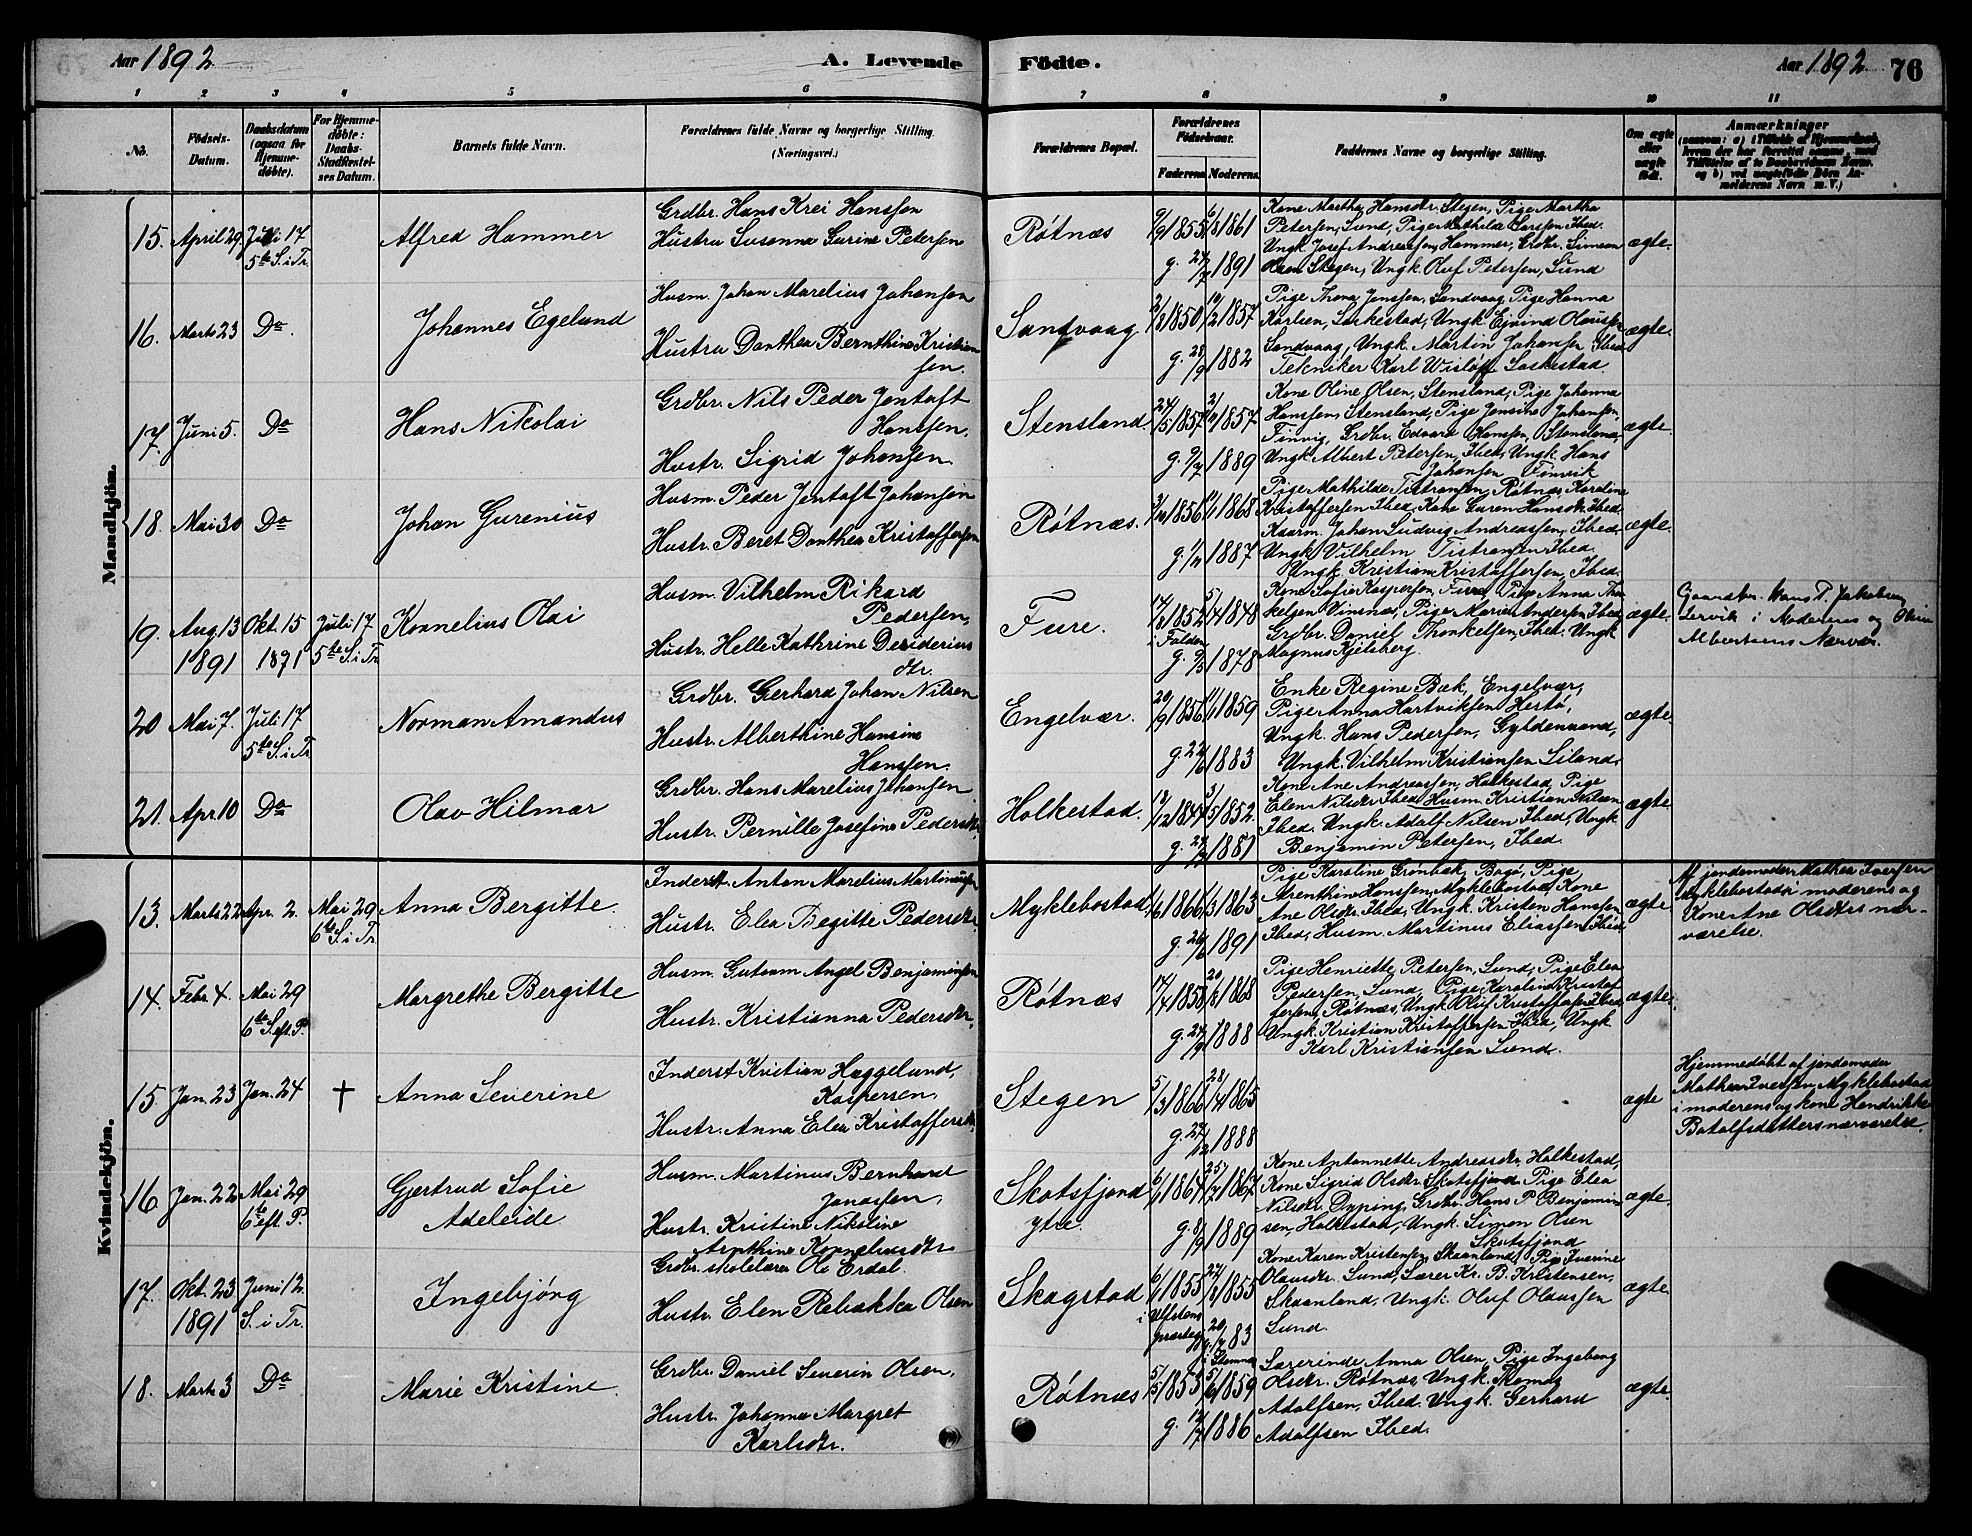 Aar 1892
A. Levende
Födte.
Aar 1892
76
1 2 3 4 5 6 7 8 9 10 11
No.
Födsels-
Datum.
Daabsdatum
(ogsaa for
Hjemme-
döbte).
For Hjemme-
döbte:
Daabs-
Stadfæstel-
ses Datum.
Barnets fulde Navn.
Forældrenes fulde Navne og borgerlige Stilling.
(Næringsvei.)
Forældrenes Bopæl.
Forældrenes
Födselsaar.
Faderens Moderens.
Faddernes Navne og borgerlige Stilling.
Om ægte
eller
uægte
födt.
Anmærkninger
Mandkjön.
15. April 29. Juli 17
5te S. i Tr.
Alfred Hammer
Grdbr. Hans Krei Hanssen
Hustru Susanna Gurine Petersen
Røtnæs
1855 1861
g. 1891
Kone Marthe Hansdtr. Stegen, Pige Martha
Petersen, Lund, Pige Mathilde Larssen Ibed.
Ungk. Josef Andreassen, Hammer, Grdbr. Simeon
Olsen Stegen, Ungk. Oluf Petersen, Lund
ægte.
16. Marts 23 Do.
Johannes Egelund
Husm. Johan Marelius Johansen
Hustru Dorthea Bernthine Kristian
sen.
Sandvaag
1850 1857
g. 28/9 1882
Pige Thora Jenssen, Sandvaag, Pige Hanna
Karlsen, Laskestad, Ungk. Ejvind Olaussen
Sandvaag, Ungk. Martin Johansn. Ibed
Tekniker Karl Wisløff Laskestad.
ægte.
17. Juni 5. Do
Hans Nikolai
Grdbr. Nils Peder Jentoft
Hanssen.
Hustr. Sigrid Johansen.
Stensland.
24/5 1857 1857
g. 9/7 1889
Kone Oline Olsen, Stensland, Pige Johanna
Hanssen, Stensland, Pige Jensine Johansen,
Finvig, Grdbr. Edvard Hanssen, Stensland,
Ungk. Albert Petersen, Ibed, Ungk. Hans
Johansen Finvik
ægte.
18. Mai 30 Do
Johan Gurenius
Husm. Peder Jentoft Johansen
Hustr. Beret Dorthea Kristoffersen
Røtnæs.
1856 1868
g. 1887
Pige Mathilde Tistransen, Røtnæs, Karoline
Kristoffersen Ibed, Kone Guren Hansdtr. Ibed.
Kaarm. Johan Ludvig Andreassen, Ibed.
Ungk. Vilhelm Tistransen Ibed.
Ungk. Kristian Kristoffersen, Ibed.
ægte.
19. Aug. 13 Okt. 15 Juli 17
1891 1891 5te S. i Tr
Kornelius Olai
Husm. Vilhelm Rikard
Pedersen,
Hustr. Helle Kathrine Desiderius
dtr.
Fure.
1852 1848
i Folden
g. 1878
Kone Sofie Kaspersen, Fure, Pige Anna Thor
kelsen Vinsnæs, Pige Marie Andersen, Ibed,
Grdbr. Daniel Thorkelsen, Ibed. Ungk
Magnus Kjelsberg.
ægte.
Gaardbr. Hans P. Jakobsen
Lervik i Moderens og Oline
Albertsens Nærvær.
20 Mai 7. Juli 17
5te S. i Tr
Norman Amandus
Grdbr. Gerhard Johan Nilsen
Hustr. Alberthine Hansine
Hanssen.
Engelvær.
20/9 1856 1859
g. 22/6 1883
Enke Regine Bæk, Engelvær,
Pige Anna Hartviksen Hestø,
Ungk. Hans Pedersen, Gyldenvand,
Ungk. Vilhelm Kristiansen Siland.
ægte.
21. Apr. 10 Do
Olav Hilmar
Grdbr. Hans Marelius Johansen
Hustr. Pernille Josefine Pedersdtr.
Holkestad.
1847 3/5 1852.
g. 1881
Kone Ane Andreassen, Holkestad, Pige
Elen Nilsdtr Ibed, Husm. Kristian Nilsen
Ibed. Ungk. Adolf Nilsen Ibed, Ungk
Benjamin Petersen, Ibed.
ægte.
Kvindekjön.
13. Marts 22 Apr. 2. Mai 29
6te S. i Tr
Anna Bergitte.
Inderst. Anton Marelius Martinussen
Hustr. Elea Begitte Pedersdtr.
Myklebostad,
1866 1863
g. 26/6 1891
Pige Karstine Grønbæk, Bogø, Pige,
Arenthine Hanssen, Myklebostad, Kone
Ane Olsdtr. Ibed, Ungk. Kristen Hanssen
Ibed, Husm. Martinus Eliassen, Ibid
ægte.
Af jordemoder Mathea Iversen
Myklebostad i moderens og
Kone Ane Olsdtrs nær-
værelse.
14. Febr. 4. Mai 29
6te S. eft. P.
Margrethe Bergitte
Husm. Gutorm Angel Benjaminsen
Hustr. Kristianna Pedersdtr.
Røtnæs
17/4 1858 1868
g. 1888
Pige Henriette Petersen, Lund, Pige Elea
Pedersen, Lund, Pige Karoline Kristof
fersen, Røtnæs, Ungk. Oluf Kristoffersen Ibed
Ungk. Kristian Kristoffersen Ibed, Ungk
Karl Kristiansen Lund.
ægte.
15 Jan. 23 Jan. 24 †
Anna Severine
Inderst Kristian Haggelund,
Kaspersen.
Hustr. Anna Elea Kristoffersdtr.
Stegen
5/3 1866 28/4 1865
g. 27/12 1888
ægte
Hjemmedøbt af jordemoder
Mathea Iversen, Myklebostad
i moderens og kone Hendrikke
Botolfsdatters nærværelse.
16 Jan. 22 Mai 29
6te eft. P.
Gjertrud Sofie
Adeleide
Husm. Martinus Bernhard
Janassen,
Hustr. Kristine Nikoline
Arnthine Kornelinsdtr
Skotsfjord
ytre.
1864 1867
g. 8/9 1889
Kone Antonnette Andreasdtr. Holkestad,
Kone Sigrid Olsdtr Skotsfjord Pige Elea
Nilsdtr. Dyping, Grdbr. Hans P. Benjamin
sen, Holkestad, Ungk. Simon Olsen
Skotsfjord
ægte.
17. Okt. 23 Juni 12.
1891 S. i Tr.
Ingebjørg
Grdbr. skolelærer Ole Erdal.
Hustr. Elen Rebakka Olsen
Skagstad
1855 1855
83
Kone Karen Kristensen, Skaanland, Pig Iverine
Olausdtr. Lund, Lærer Kr. B. Kristensen,
Skaanland, Ungk. Oluf Olaussen
Lund.
ægte.
18. Marts 3 Do
Marie Kristine
Grdbr. Daniel Severin Olsen,
Hustr. Johanna Margret
Karlsdtr.
Røtnæs
5/5 1853 1859
g. 1886
Lærerinde Anna Olsen, Pige Ingeborg
Olsdtr. Røtnæs Ungk. Tomas
Adolfsen, Ibed. Ungk. Gerhard
Adolfsen Ibed.
ægte.